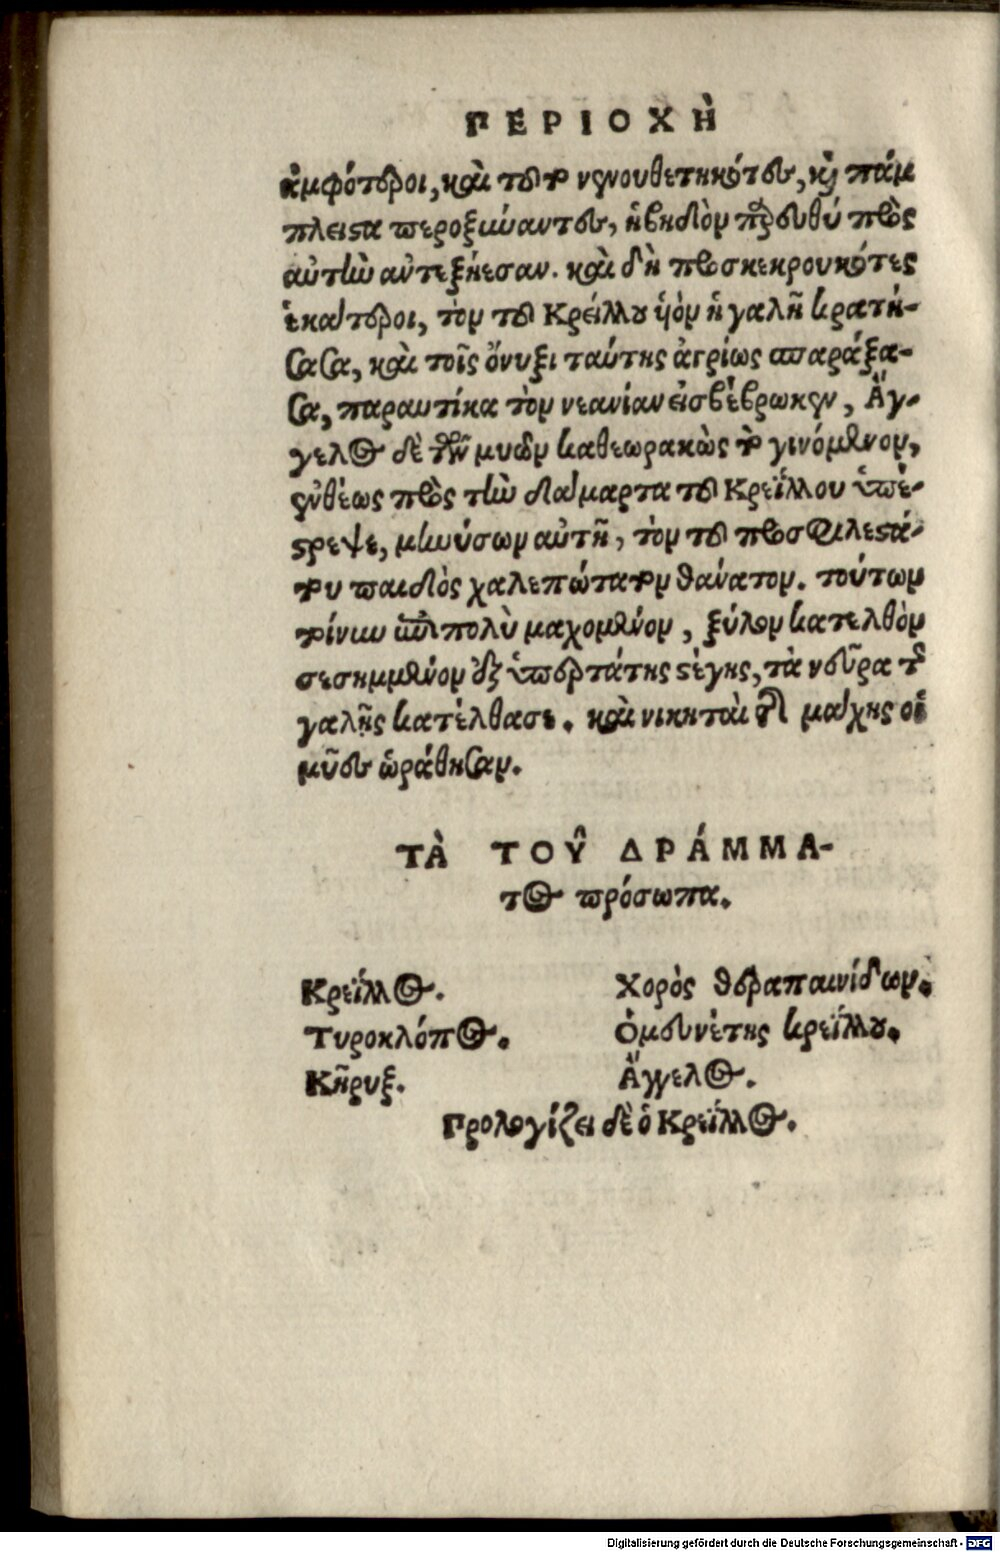 ΠΕΡΙΟΧῊ
ἀμφότεροι, καὶ τοῦτο νενουθετηκότες, καὶ πάμ
πλειστα παροξύναντες, ἡβηδὸν πρὸς
αὐτὴν ἀντεξῄεσαν. καὶ δὴ προσκεκρουκότες
ἑκάτεροι, τὸν τοῦ Κρεΐλλου ὑὸν ἡ γαλῆ κρατή-
σασα, καὶ τοῖς ὄνυξι ταύτης ἀγρίως σπαράξα-
σα, παραυτίκα τὸν νεανίαν εἰσβέβρωκεν, Ἄγ-
γελος δὲ τῶν μυῶν καθεωρακὼς τὸ γινόμενον,
εὐθέως πρὸς τὴν δάμαρτα τοῦ Κρεΐλλου ὑπέ-
στρεψε, μηνύσων αὐτῇ, τὸν τοῦ προσφιλεστά-
του παιδὸς χαλεπώτατον θάνατον. τούτων
τοίνυν ἐπιπολὺ μαχομένον, ξύλον κατελθὸν
σεσημμένον ἐξ ὑπερτάτης στέγης, τὰ νεῦρα τῆς
γαλῆς κατέλθασε. καὶ νικηταὶ τῆς μάχης οἱ
μῦες ὡράθησαν.
ΤᾺ ΤΟΥ͂ ΔΡΆΜΜΑ-
τος πρόσωπα.
Κρεΐλλος.
Τυροκλόπος.
Κῆρυξ.
Χορὸς θεραπαινίδων.
Ὁμευνέτης κρεΐλλου.
Ἄγγελος.
Προλογίζει δὲ ὁ Κρεΐλλος.
Digitalisierung gefördert durch die Deutsche Forschungsgemeinschaft - DFG